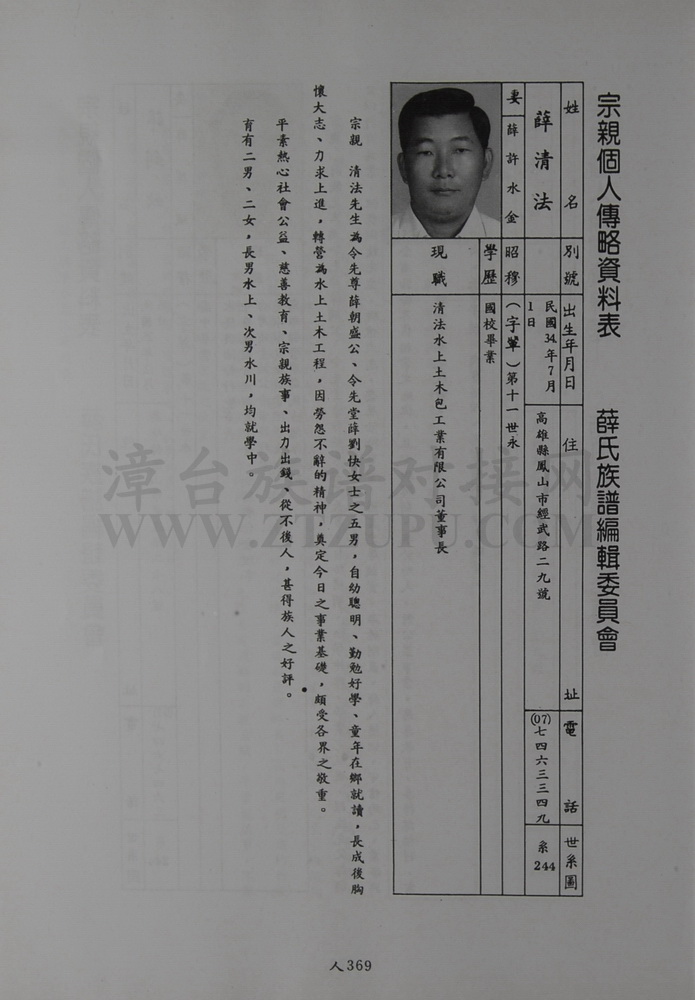 宗親個人傳略資料表　薛氏族譜編輯委員會
姓名
薛清法
別號
出生年月日
民國34年7月1日
住址
高雄縣鳳山市經武路二九號
電話
(07)七四六三三四九
世系圖
系244
妻
薛許水金
昭穆
(字輩)第十一世永
學歷
國校畢業
現職
清法水上土木包工業有限公司董事長
宗親　清法先生為令先尊薛朝盛公、令先堂薛劉快女士之五男，自幼聰明、勤勉好學、童年在鄉就讀，長成後胸
懷大志、力求上進，轉營為水上土木工程，因勞怨不辭的精神，奠定今日之事業基礎，頗受各界之敬重。
平素熱心社會公益、慈善教育、宗親族事、出力出錢、從不後人，甚得族人之好評。
育有二男、二女，長男水上、次男水川，均就學中。
漳台族谱对接网
WWW.ZTZUPU.COM
人369